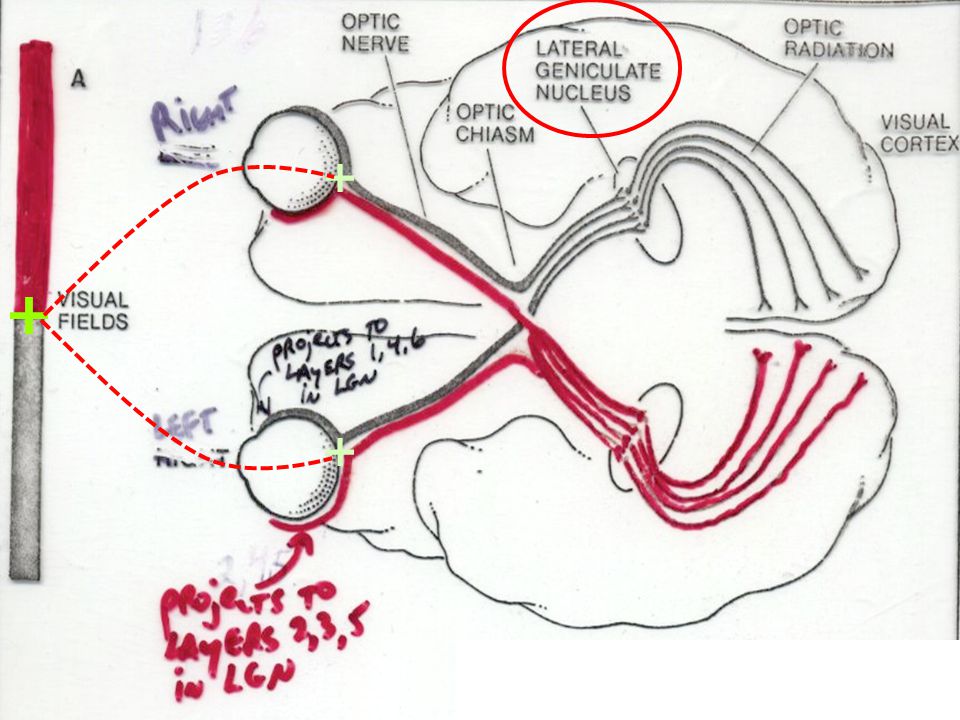 A
OPTIC
NERVE
LATERAL
GENICULATE
NUCLEUS
OPTIC
RADIATION
OPTIC
CHIASM
VISUAL
CORTEX
RIGHT
VISUAL
FIELDS
PROJECTS TO
LAYERS 1,4,6
IN LGN
LEFT
RIGHT
PROJECTS TO
LAYERS 2,3,5
in LGN